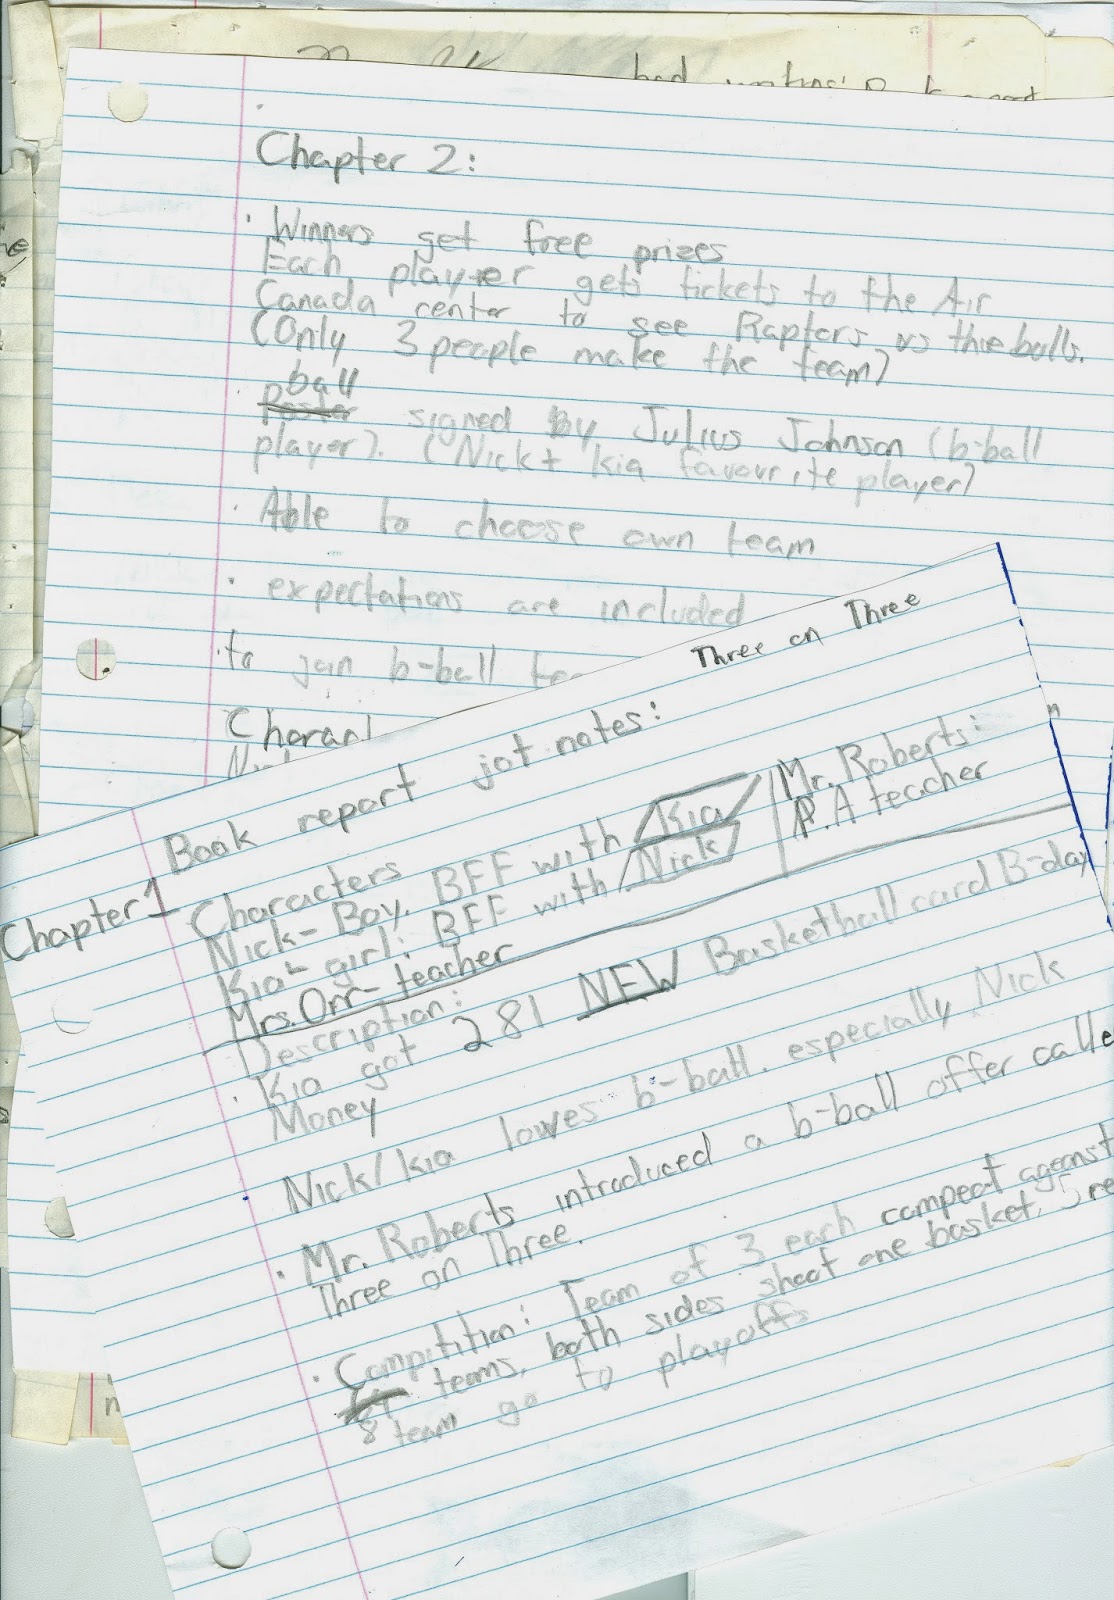 had
Chapter 2:
· Winners get free prizes
Each player gets tickets to the Air
Canada center to see Raptors vs the bulls.
(Only 3 people make the team)
ball
· poster signed by Julius Johnson (b-ball
player). (Nick + Kia favourite player)
· Able to choose own team
· expectations are included
· to join b-ball
Three on Three
Book report jot notes:
Chapter 1
Characters
Nick- Boy. BFF with Kia
Kia- girl: BFF with Nick
Mrs. Orr- teacher
Mr. Roberts:
P.A teacher
Description:
· Kia got 281 NEW Basketball card B-day
Money
· Nick/Kia loves b-ball. especially Nick
· Mr. Roberts introduced a b-ball offer calle
Three on Three.
· Compitition: Team of 3 each campeat ageanst
teams, both sides shoot one basket, 5 re
8 team go to playoffs